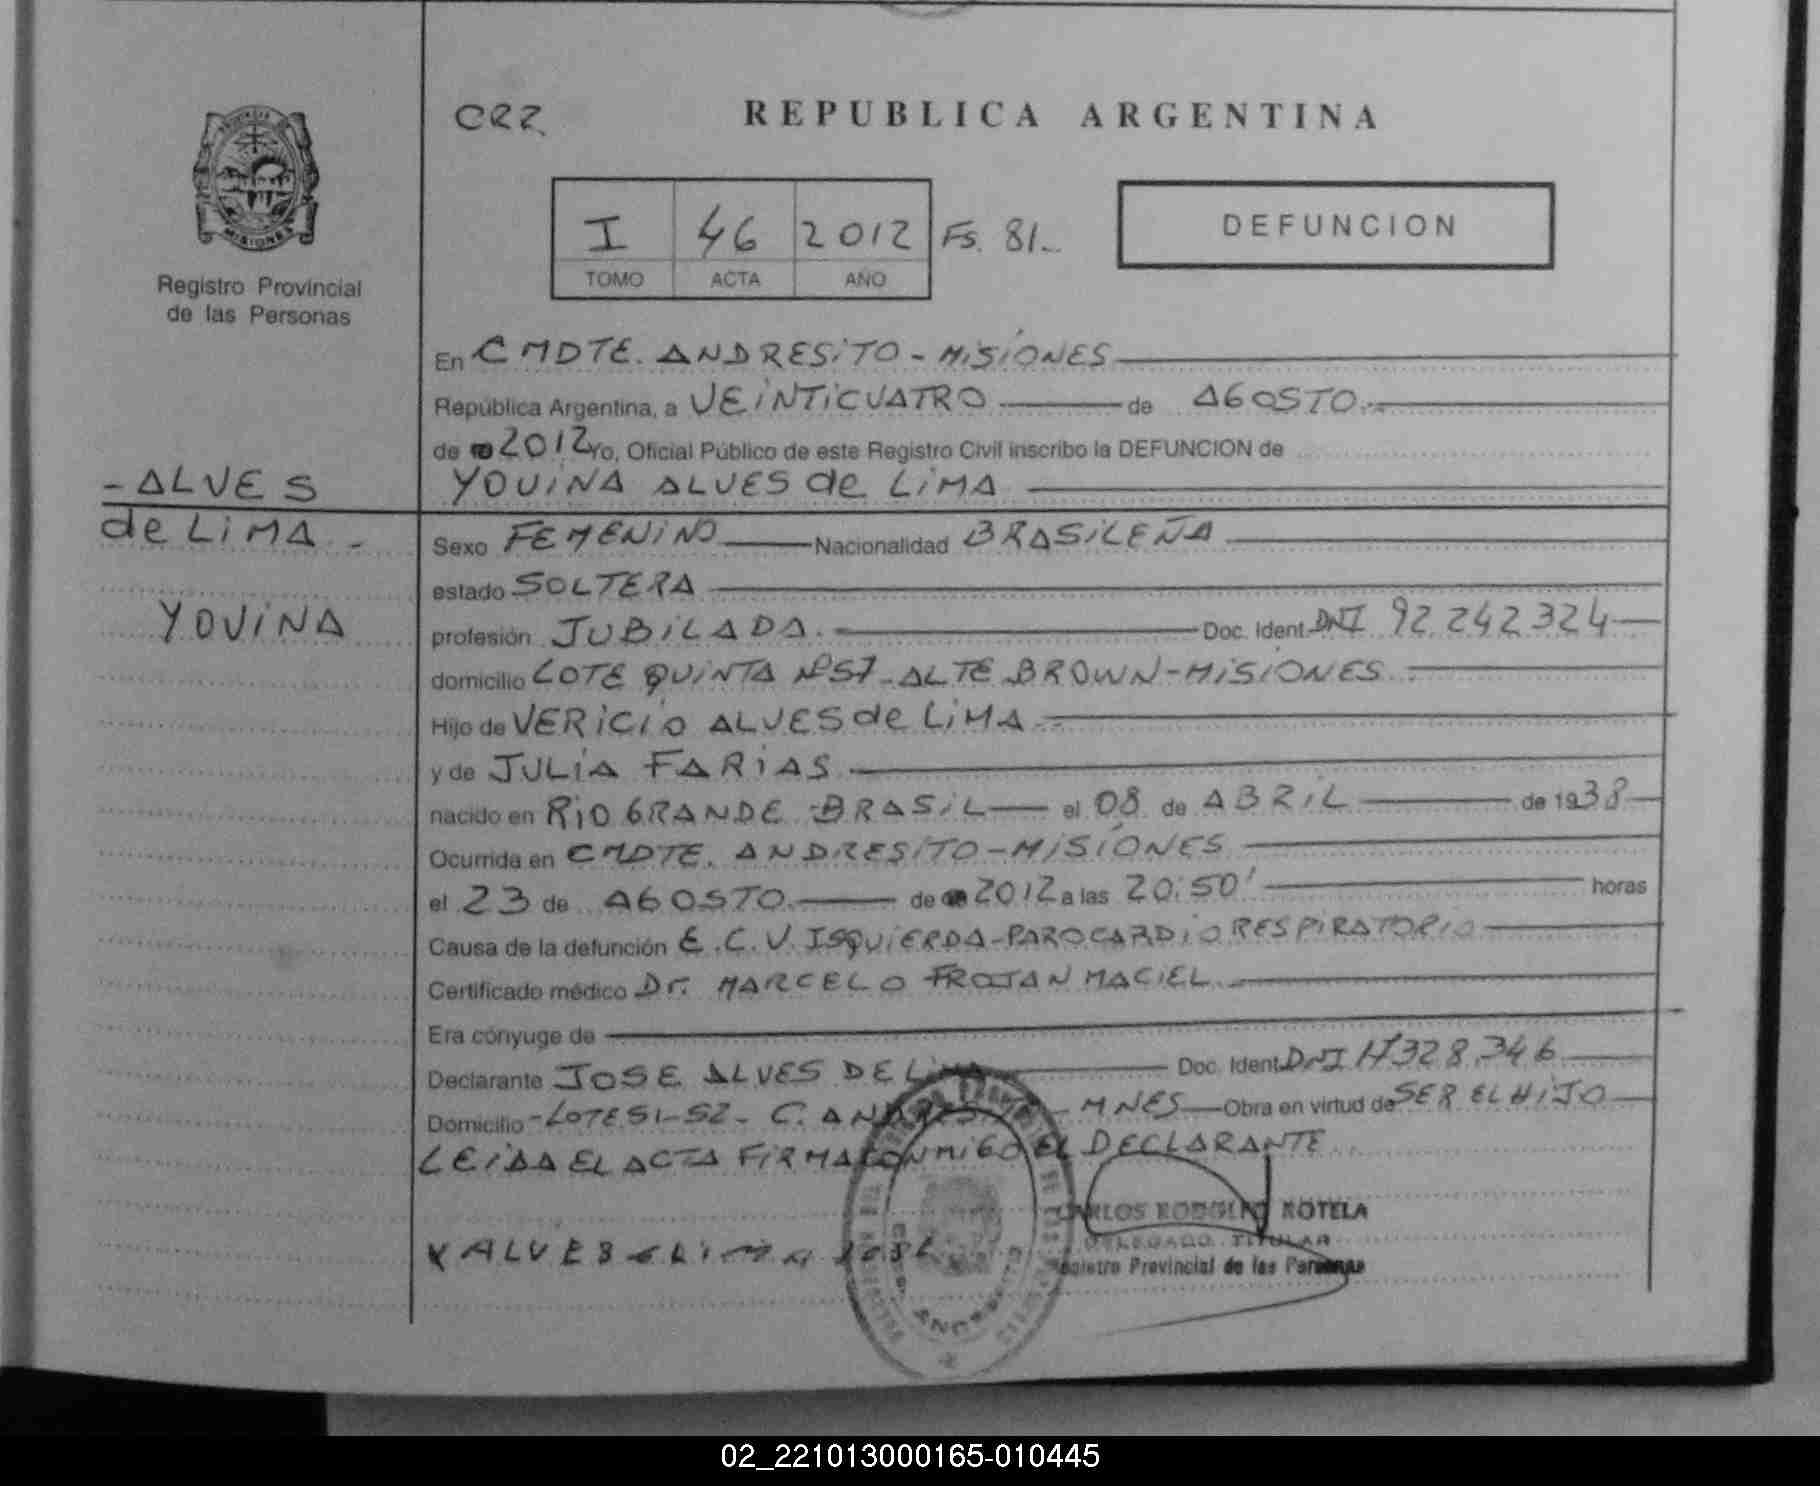 CRR
REPUBLICA ARGENTINA
I 46 2012 Fs. 81.-
TOMO ACTA AÑO
DEFUNCION
MISIONES
Registro Provincial
de las Personas
En CMDTE. ANDRESiTO - MiSiONES
República Argentina, a VEiNTiCUATRO de AGOSTO.-
de 2012 Yo, Oficial Público de este Registro Civil inscribo la DEFUNCION de
YOUiNA ALVES de LiMA
- ALVES
de LiMA -
YOUiNA
Sexo FEMENiNO Nacionalidad BRASiLEÑA
estado SOLTERA
profesión JUBiLADA. Doc. Ident. DNI 92.242.324
domicilio LOTE QUiNTA Nº57 - ALTE BROWN - MiSiONES
Hijo de VERiCiO ALVES de LiMA
y de JULiA FARiAS
nacido en RiO GRANDE - BRASiL el 08 de ABRiL de 1938
Ocurrida en CMDTE. ANDRESiTO - MiSiONES
el 23 de AGOSTO de 2012 a las 20:50' horas
Causa de la defunción E.C.V. ISQUiERDA - PAROCARDiO RESPiRATORiO
Certificado médico Dr. MARCELO FROJAN MACiEL
Era cónyuge de
Declarante JOSE ALVES DE LiMA Doc. Ident. DNI 17328.346
Domicilio - LOTE 51-52 - C. ANDRESiTO - MNES Obra en virtud de SER EL HiJO
LEiDA EL ACTA FiRMA CONMiGO EL DECLARANTE
CARLOS RODOLFO ROTELA
DELEGADO TITULAR
Registro Provincial de las Personas
X ALVES
ANDRESITO
02_221013000165-010445